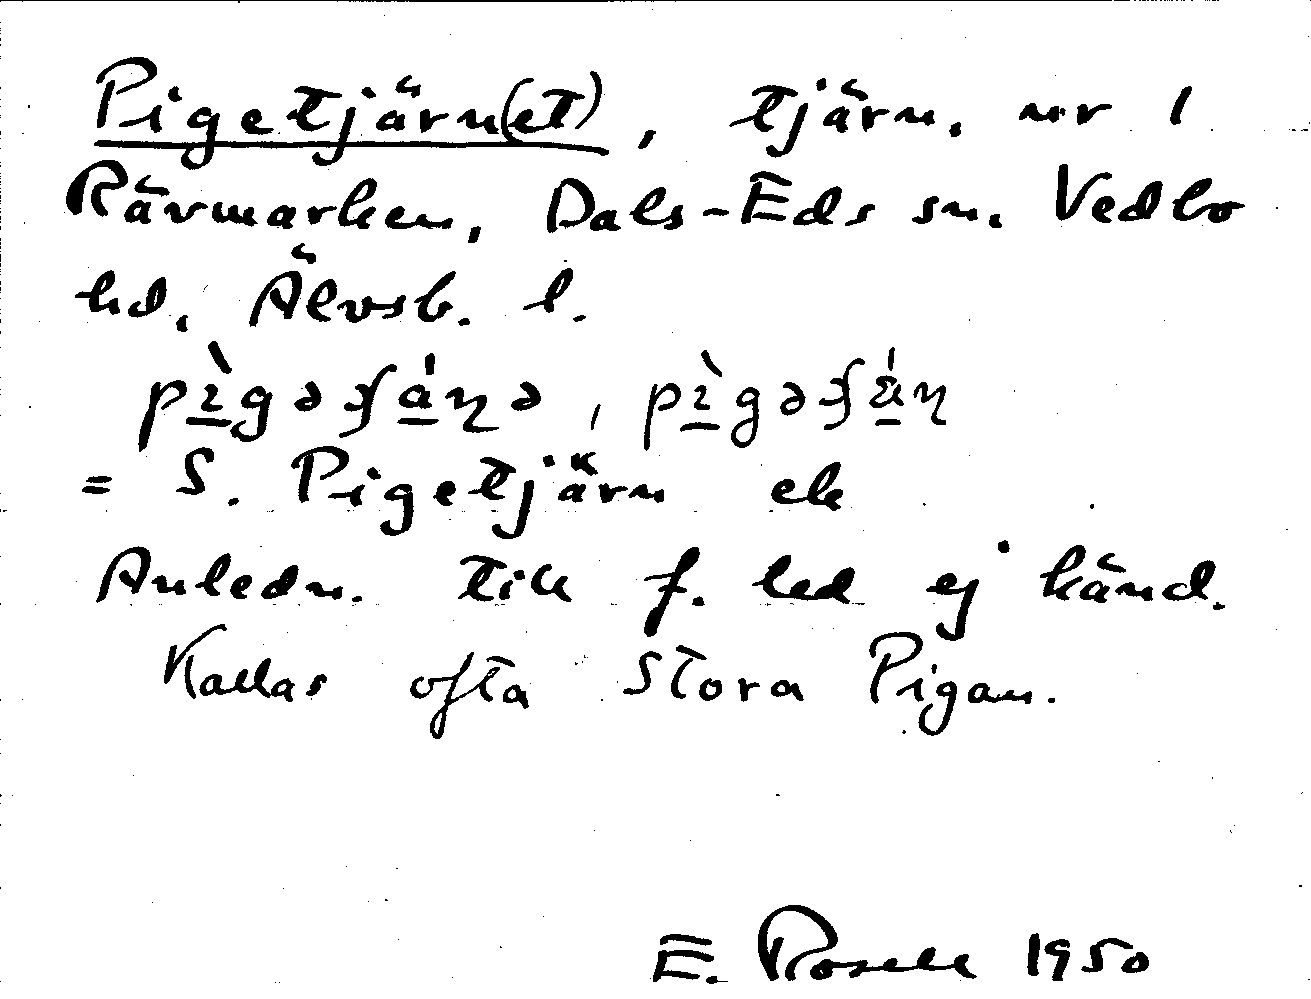 Pigetjärn(et), tjärn, nr 1
Rävmarken, Dals-Eds sn. Vedbo
hd. Älvsb. l.
= S. Pigetjärn ek
Anledn. till f. led ej känd.
Kallas ofta Stora Pigan.
E. Rosell 1950